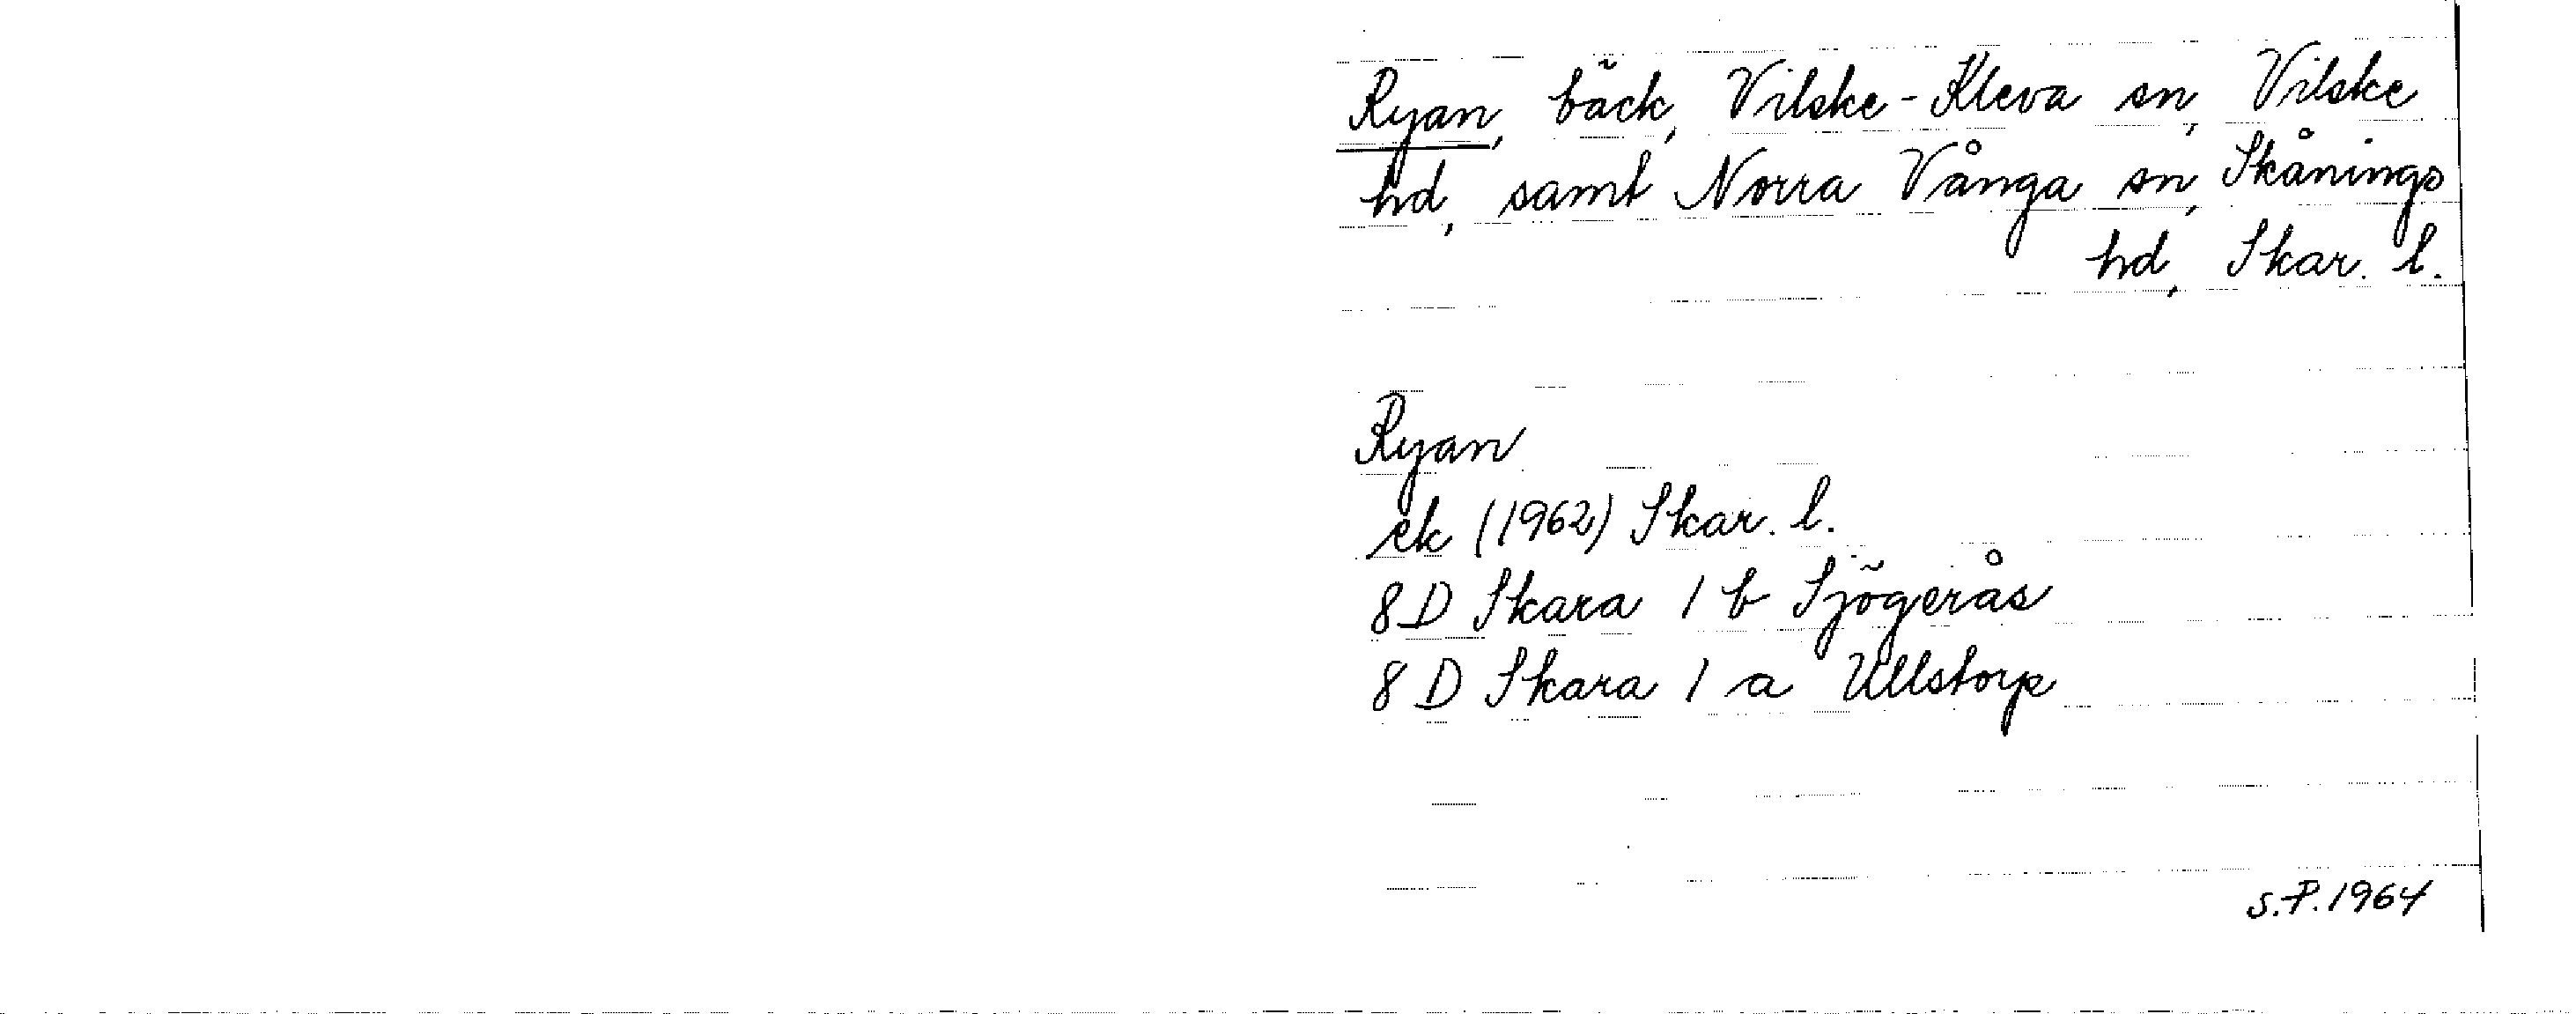 Ryan, bäck, Vilske-Kleva sn, Vilske
hd, samt Norra Vånga sn, Skånings
hd, Skar. l.
Ryan
ek (1962) Skar. l.
8D Skara 1 b Sjögerås
8 D Skara 1 a Ullstorp
S.P. 1964